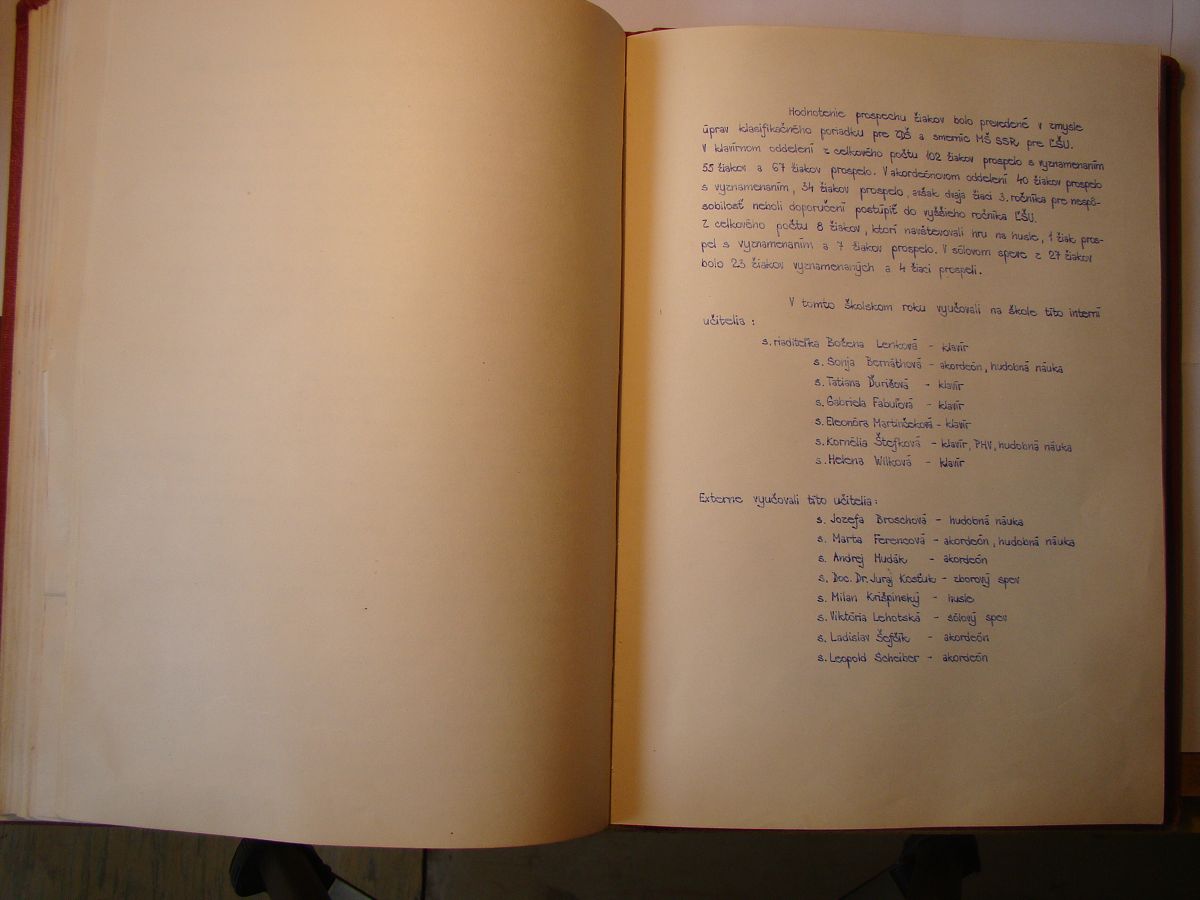 Hodnotenie prospechu žiakov bolo prevedené v zmysle
úprav klasifikačného poriadku pre ZDŠ a smerníc MŠ SSR pre ĽŠU.
V klavírnom oddelení z celkového počtu 102 žiakov prospelo s vyznamenaním
55 žiakov a 67 žiakov prospelo. V akordeónovom oddelení 40 žiakov prospelo
s vyznamenaním, 34 žiakov prospelo, avšak dvaja žiaci 3. ročníka pre nespô-
sobilosť neboli doporučení postúpiť do vyššieho ročníka ĽŠU.
Z celkového počtu 8 žiakov, ktorí navštevovali hru na husle, 1 žiak pros-
pel s vyznamenaním a 7 žiakov prospelo. V sólovom speve z 27 žiakov
bolo 23 žiakov vyznamenaných a 4 žiaci prospeli.
V tomto školskom roku vyučovali na škole títo interní
učitelia :
s. riaditeľka Božena Lenková - klavír
s. Sonja Bernáthová - akordeón, hudobná náuka
s. Tatiana Ďurišová - klavír
s. Gabriela Fabuľová - klavír
s. Eleonóra Martinčeková - klavír
s. Kornélia Štefková - klavír, PHV, hudobná náuka
s. Helena Wilková - klavír
Externe vyučovali títo učitelia :
s. Jozefa Broschová - hudobná náuka
s. Marta Ferencová - akordeón, hudobná náuka
s. Andrej Hudák - akordeón
s. Doc. Dr. Juraj Kosťuk - zborový spev
s. Milan Krišpinský - husle
s. Viktória Lehotská - sólový spev
s. Ladislav Šefčík - akordeón
s. Leopold Scheiber - akordeón